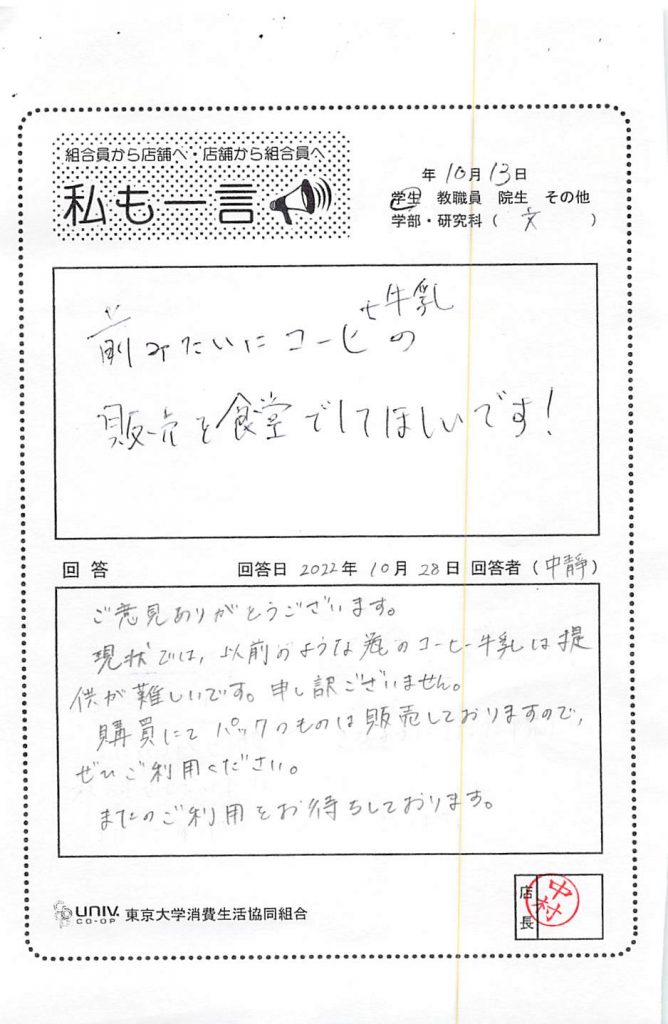 組合員から店舗へ・店舗から組合員へ
私も一言
年 10月 13日
学生 教職員 院生 その他
学部・研究科(文)
前みたいにコーヒー牛乳の
販売を食堂でしてほしいです!
回答 回答日 2022年 10月 28日 回答者(中静)
ご意見ありがとうございます。
現状では、以前のような瓶のコーヒー牛乳は提
供が難しいです。申し訳ございません。
購買にてパックのものは販売しておりますので、
ぜひご利用ください。
またのご利用をお待ちしております。
UNIV. CO-OP 東京大学消費生活協同組合
店長 中村